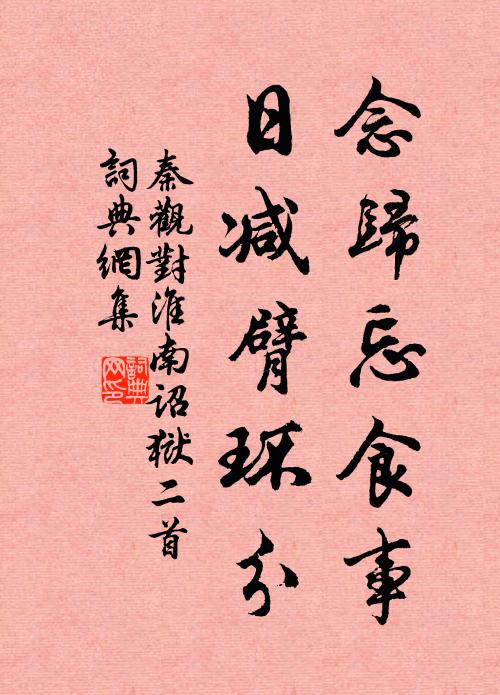 念歸忘食事
日減臂環分
秦觀對淮南詔獄二首
詞典網集
詞典網印